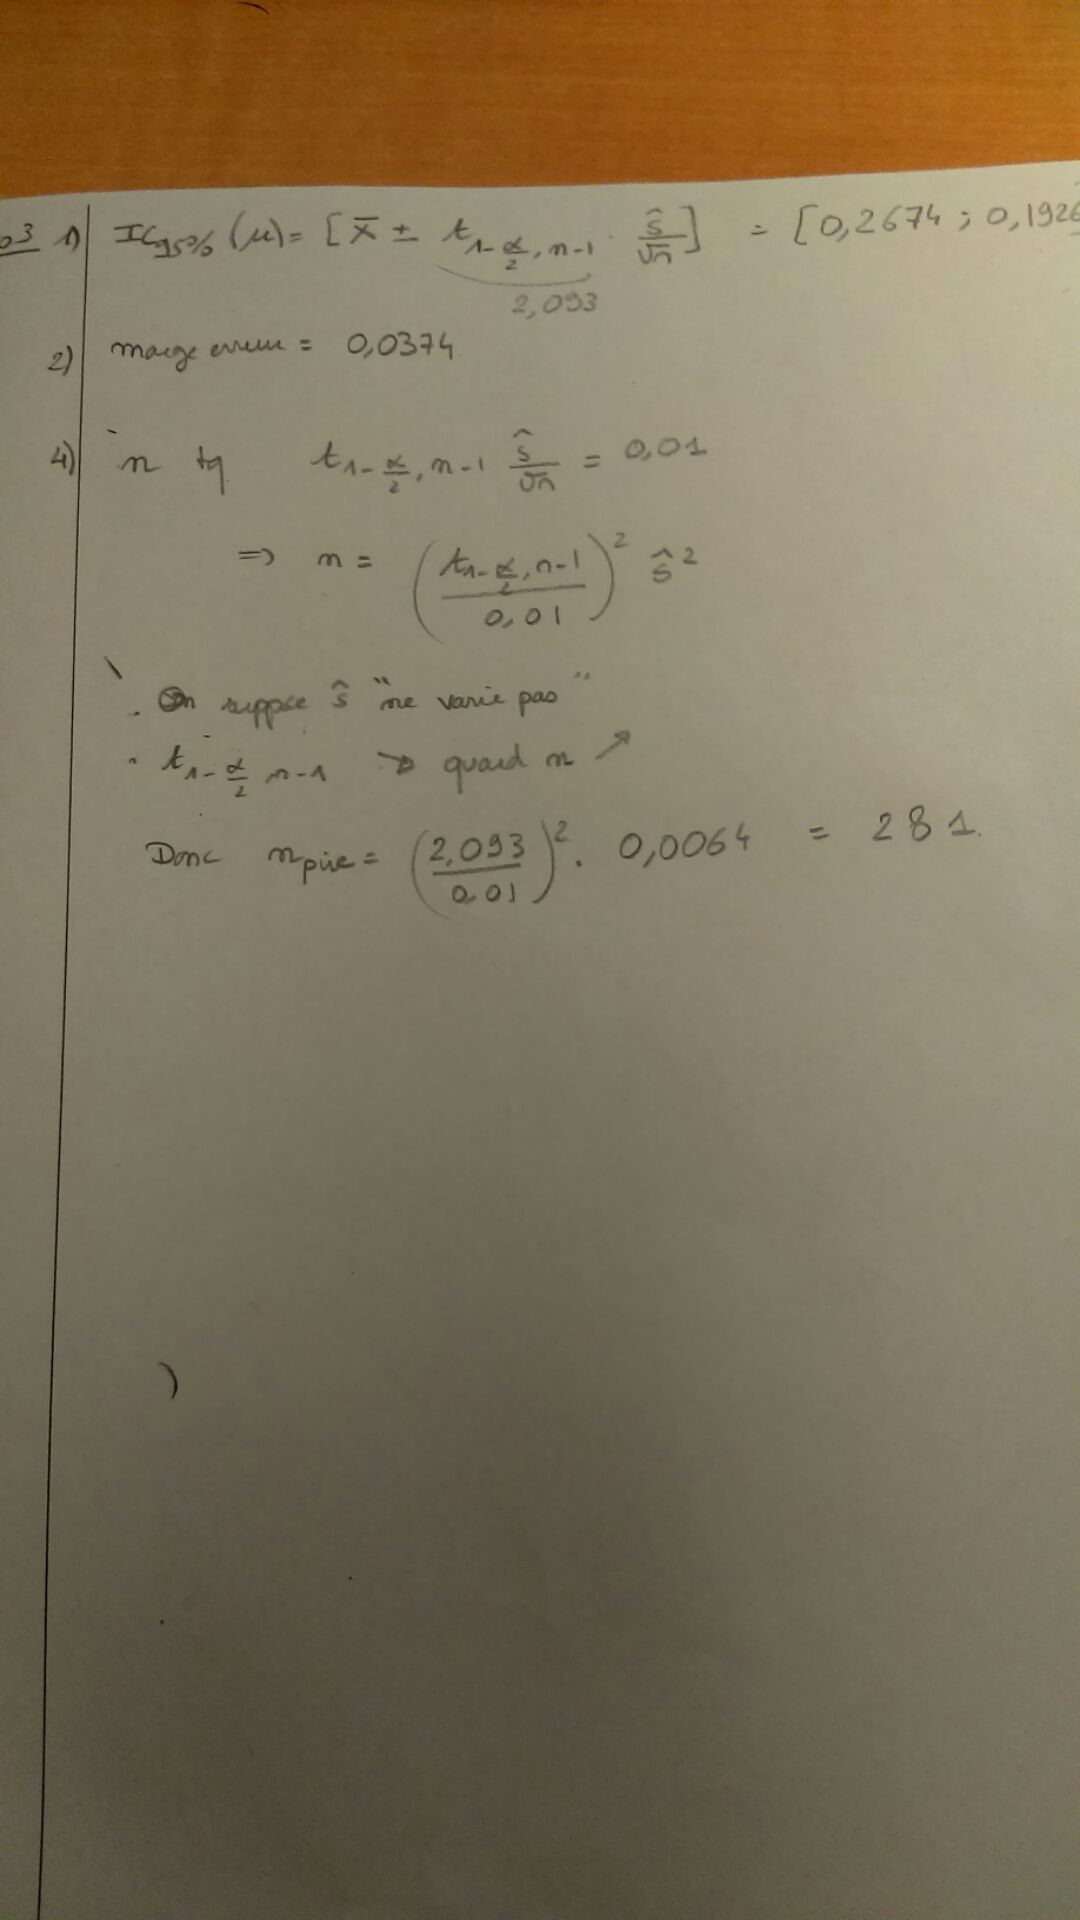 03 1) IC95% (μ) = [x̄ ± t1-α/2, n-1 · ŝ/√n] = [0,2674 ; 0,1926
2,093
2) marge erreur = 0,0374
4) n tq t1-α/2, n-1 ŝ/√n = 0,01
=> n = (t1-α/2, n-1 / 0,01)² ŝ²
. On suppose ŝ "ne varie pas"
. t1-α/2, n-1 ↘ quand n ↗
Donc npire = (2,093 / 0,01)² . 0,0064 = 281.